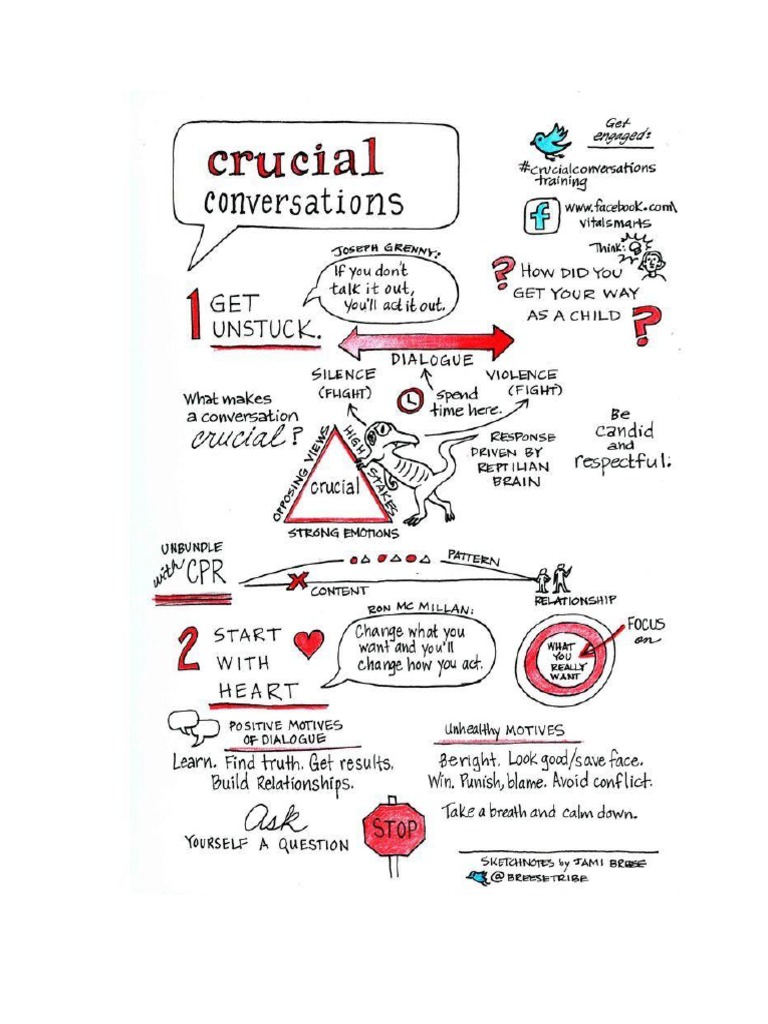 crucial
conversations
Get
engaged:
#crucialconversations
training
f www.facebook.com\
vitalsmarts
Think:
? HOW DID YOU
GET YOUR WAY
AS A CHILD ?
1 GET
UNSTUCK.
JOSEPH GRENNY:
If you don't
talk it out,
you'll act it out.
DIALOGUE
SILENCE
(FLIGHT)
VIOLENCE
(FIGHT)
spend
time here.
What makes
a conversation
crucial?
OPPOSING VIEWS
HIGH STAKES
crucial
STRONG EMOTIONS
RESPONSE
DRIVEN BY
REPTILIAN
BRAIN
Be
candid
and
respectful.
UNBUNDLE
with CPR
PATTERN
CONTENT
RELATIONSHIP
2 START
WITH
HEART
RON MC MILLAN:
Change what you
want and you'll
change how you act.
FOCUS
on
WHAT
YOU
REALLY
WANT
POSITIVE MOTIVES
OF DIALOGUE
Learn. Find truth. Get results.
Build Relationships.
Unhealthy MOTIVES
Be right. Look good/save face.
Win. Punish, blame. Avoid conflict.
Ask
YOURSELF A QUESTION
STOP
Take a breath and calm down.
SKETCHNOTES by JAMI BREESE
@BREESETRIBE